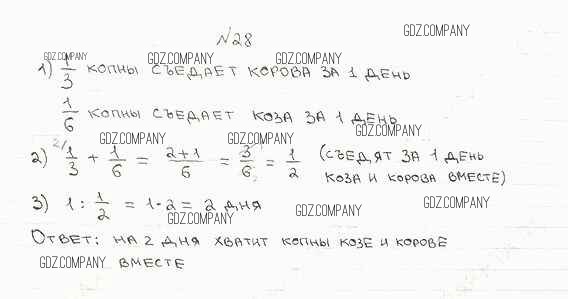 №28
GDZ.COMPANY
GDZ.COMPANY GDZ.COMPANY GDZ.COMPANY
1) 1/3 КОПНЫ СЪЕДАЕТ КОРОВА ЗА 1 ДЕНЬ
1/6 КОПНЫ СЪЕДАЕТ КОЗА ЗА 1 ДЕНЬ
GDZ.COMPANY GDZ.COMPANY GDZ.COMPANY
2) 2/ 1/3 + 1/6 = 2+1/6 = 3/6 = 1/2 (СЪЕДЯТ ЗА 1 ДЕНЬ
КОЗА И КОРОВА ВМЕСТЕ)
3) 1 : 1/2 = 1·2 = 2 ДНЯ
GDZ.COMPANY GDZ.COMPANY GDZ.COMPANY
ОТВЕТ: НА 2 ДНЯ ХВАТИТ КОПНЫ КОЗЕ И КОРОВЕ
GDZ.COMPANY ВМЕСТЕ